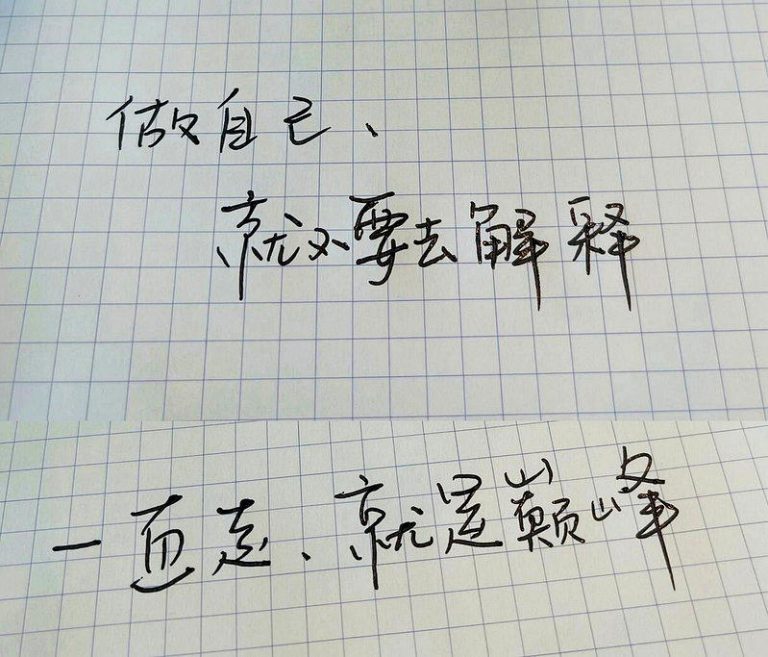 做自己、
就不要去解释
一直走、就是巅峰